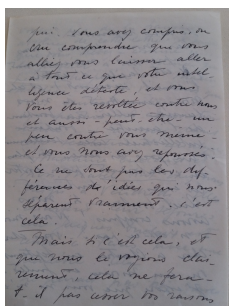 qui. Vous avez compris, ou
cru comprendre que vous
alliez vous laisser aller
à tout ce que votre intel
ligence déteste, et vous
vous êtes révoltée contre nous
et aussi - peut-être - un
peu contre vous même -
et vous nous avez repoussés.
Ce ne sont pas les dif-
férences d'idées qui nous
séparent vraiment, c'est
cela.
Mais si c'est cela, et
que nous le voyions clai-
rement, cela ne fera-
t-il pas céder vos raisons